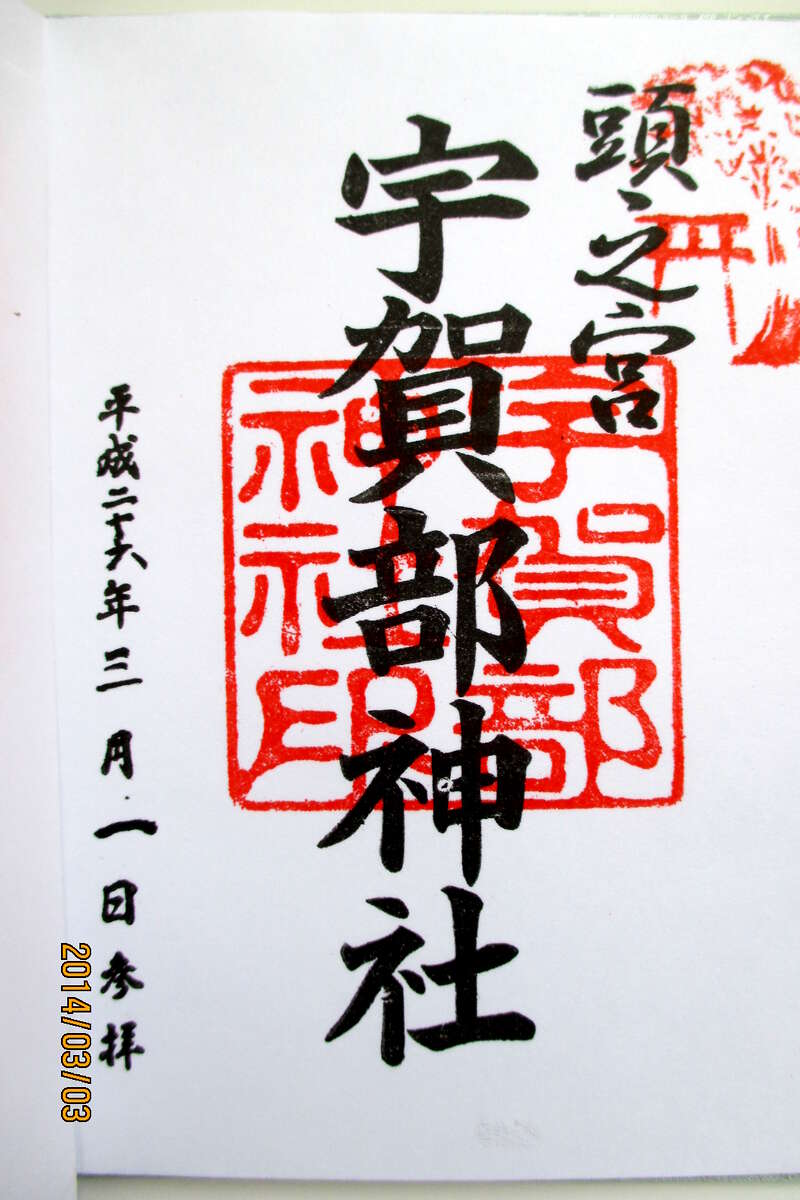 頭之宮
宇賀部神社
宇賀部
神社印
平成二十六年三月一日参拝
2014/03/03